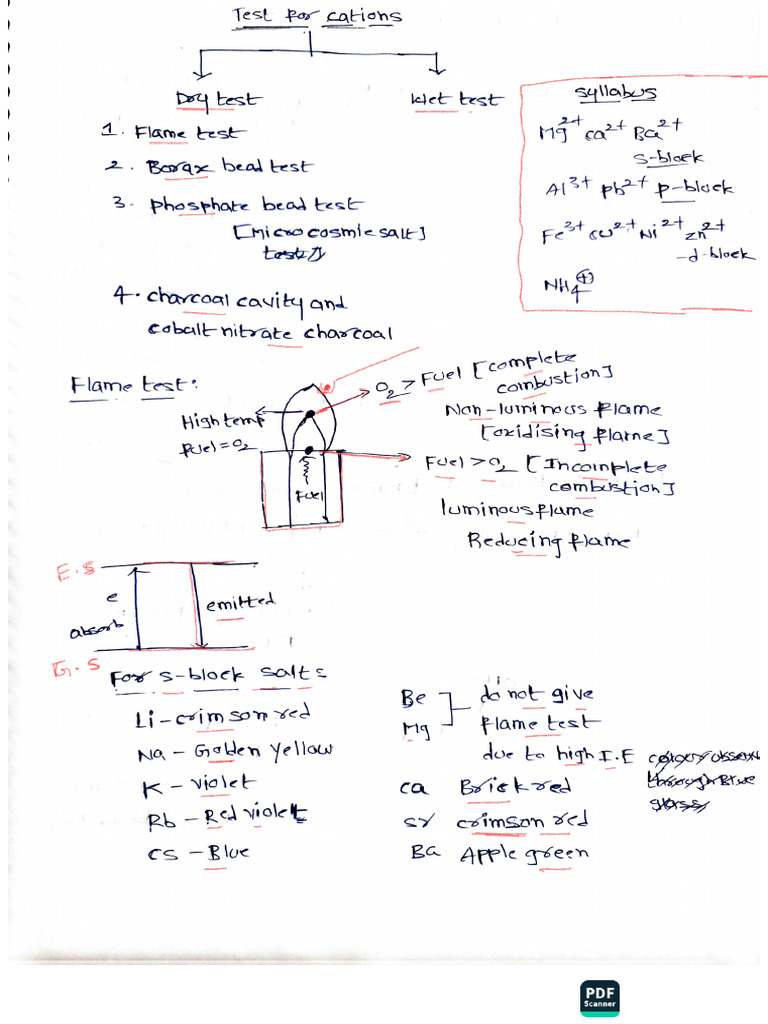 Test for cations
Dry test
Wet test
1. Flame test
2. Borax bead test
3. phosphate bead test
[Microcosmic salt]
test]
4. charcoal cavity and
cobalt nitrate charcoal
syllabus
Mg2+ ca2+ Ba2+
s-block
Al3+ pb2+ p-block
Fe3+ cu2+ Ni2+ zn2+
-d-block
NH4⊕
Flame test:
O2 > Fuel [complete
combustion]
Non-luminous flame
[oxidising flame]
High temp
fuel = O2
Fuel > O2 [Incomplete
combustion]
luminous flame
Reducing flame
Fuel
E.s
e
absorb
emitted
G.s
For s-block salts
Li - crimson red
Na - Golden yellow
K - violet
Rb - Red violet
cs - Blue
Be
Mg
do not give
flame test
due to high I.E
through Blue
glass
ca Brick red
sr crimson red
Ba Apple green
PDF
Scanner